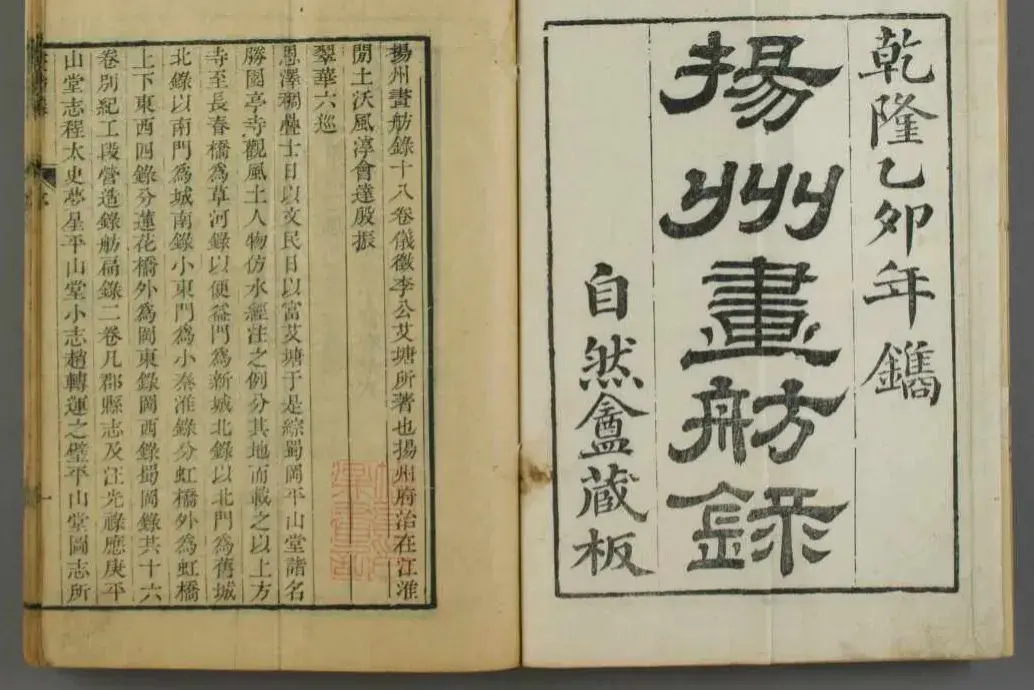 乾隆乙卯年鐫
揚州畫舫錄
自然盦藏板
揚州畫舫錄十八卷儀徵李公艾塘所著也揚州府治在江淮
閒土沃風淳會達殷振
翠華六巡
恩澤稠疊士日以文民日以富艾塘于是綜蜀岡平山堂諸名
勝園亭寺觀風土人物仿水經注之例分其地而載之以上方
寺至長春橋為草河錄以便益門為新城北錄以北門為舊城
北錄以南門為城南錄小東門為小秦淮錄分虹橋外為虹橋
上下東西四錄分蓮花橋外為岡東錄岡西錄蜀岡錄共十六
卷別紀工段營造錄舫扁錄二卷凡郡縣志及汪光祿應庚平
山堂志程太史夢星平山堂小志趙轉運之璧平山堂圖志所